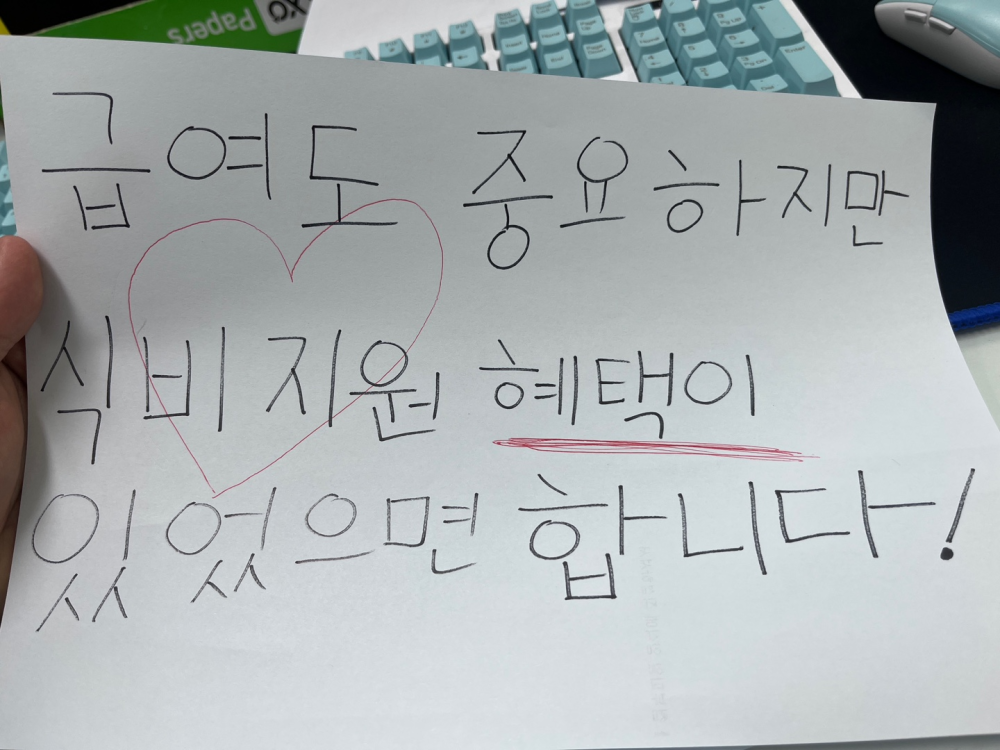 Papers
급여도 중요하지만
식비 지원 혜택이
있었으면 합니다!